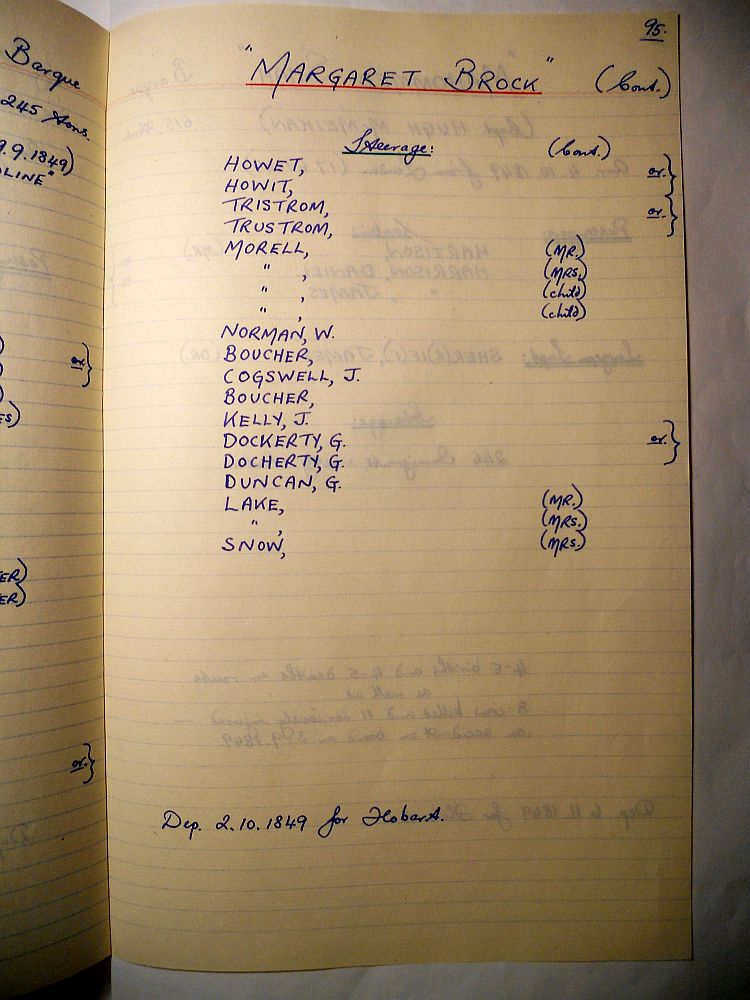 Barque
245 tons.
9.9.1849)
OLINE"
or. }
ES)
ER)
ER)
or. }
95.
"MARGARET BROCK" (Cont.)
Steerage: (Cont.)
HOWET, or. }
HOWIT,
TRISTROM, or. }
TRUSTROM,
MORELL, (MR.)
" , (MRS.)
" , (child)
" , (child)
NORMAN, W.
BOUCHER,
COGSWELL, J.
BOUCHER,
KELLY, J.
DOCKERTY, G. or. }
DOCHERTY, G.
DUNCAN, G.
LAKE, (MR.)
" , (MRS.)
SNOW, (MRS.)
Dep. 2.10.1849 for Hobart.